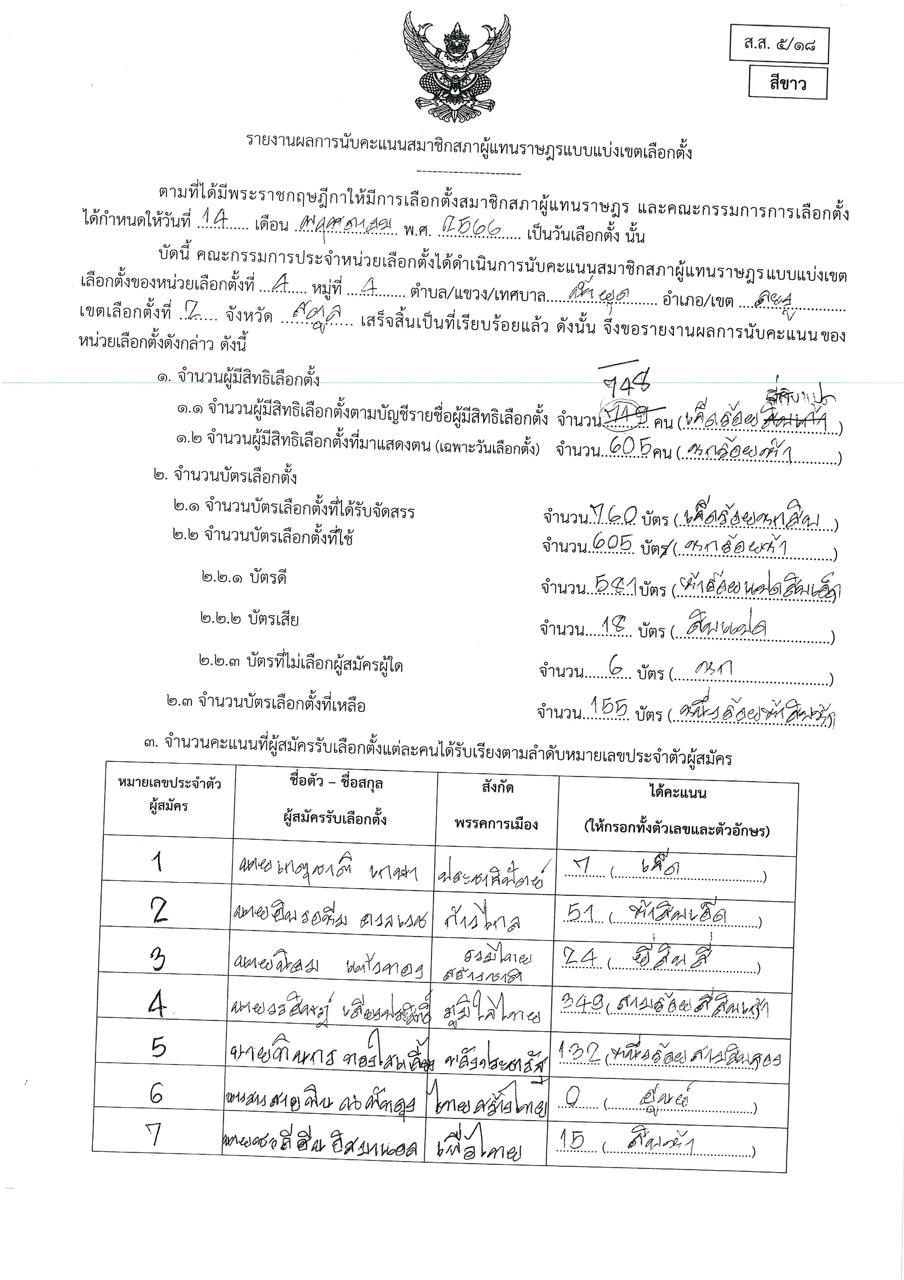 ส.ส. ๕/๑๘
สีขาว
รายงานผลการนับคะแนนสมาชิกสภาผู้แทนราษฎรแบบแบ่งเขตเลือกตั้ง
ตามที่ได้มีพระราชกฤษฎีกาให้มีการเลือกตั้งสมาชิกสภาผู้แทนราษฎร และคณะกรรมการการเลือกตั้ง
ได้กำหนดให้วันที่ 14 เดือน พฤษภาคม พ.ศ. 2566 เป็นวันเลือกตั้ง นั้น
บัดนี้ คณะกรรมการประจำหน่วยเลือกตั้งได้ดำเนินการนับคะแนนสมาชิกสภาผู้แทนราษฎรแบบแบ่งเขต
เลือกตั้งของหน่วยเลือกตั้งที่ 4 หมู่ที่ 4 ตำบล/แขวง/เทศบาล อำเภอ/เขต ละงู
เขตเลือกตั้งที่ 2 จังหวัด สตูล เสร็จสิ้นเป็นที่เรียบร้อยแล้ว ดังนั้น จึงขอรายงานผลการนับคะแนนของ
หน่วยเลือกตั้งดังกล่าว ดังนี้
๑. จำนวนผู้มีสิทธิเลือกตั้ง
748 สี่สิบแปด
๑.๑ จำนวนผู้มีสิทธิเลือกตั้งตามบัญชีรายชื่อผู้มีสิทธิเลือกตั้ง จำนวน 749 คน (เจ็ดร้อยสี่สิบเก้า)
๑.๒ จำนวนผู้มีสิทธิเลือกตั้งที่มาแสดงตน (เฉพาะวันเลือกตั้ง) จำนวน 605 คน (หกร้อยห้า)
๒. จำนวนบัตรเลือกตั้ง
๒.๑ จำนวนบัตรเลือกตั้งที่ได้รับจัดสรร จำนวน 760 บัตร (เจ็ดร้อยหกสิบ)
๒.๒ จำนวนบัตรเลือกตั้งที่ใช้ จำนวน 605 บัตร (หกร้อยห้า)
๒.๒.๑ บัตรดี จำนวน 581 บัตร (ห้าร้อยแปดสิบเอ็ด)
๒.๒.๒ บัตรเสีย จำนวน 18 บัตร (สิบแปด)
๒.๒.๓ บัตรที่ไม่เลือกผู้สมัครผู้ใด จำนวน 6 บัตร (หก)
๒.๓ จำนวนบัตรเลือกตั้งที่เหลือ จำนวน 155 บัตร (หนึ่งร้อยห้าสิบห้า)
๓. จำนวนคะแนนที่ผู้สมัครรับเลือกตั้งแต่ละคนได้รับเรียงตามลำดับหมายเลขประจำตัวผู้สมัคร
หมายเลขประจำตัว ชื่อตัว – ชื่อสกุล สังกัด ได้คะแนน
ผู้สมัคร ผู้สมัครรับเลือกตั้ง พรรคการเมือง (ให้กรอกทั้งตัวเลขและตัวอักษร)
1 ประชาธิปัตย์ 7 (เจ็ด)
2 ก้าวไกล 51 (ห้าสิบเอ็ด)
3 รวมไทยสร้างชาติ 24 (ยี่สิบสี่)
4 ภูมิใจไทย 349 (สามร้อยสี่สิบเก้า)
5 พลังประชารัฐ 132 (หนึ่งร้อยสามสิบสอง)
6 ไทยสร้างไทย 0 (ศูนย์)
7 เพื่อไทย 15 (สิบห้า)